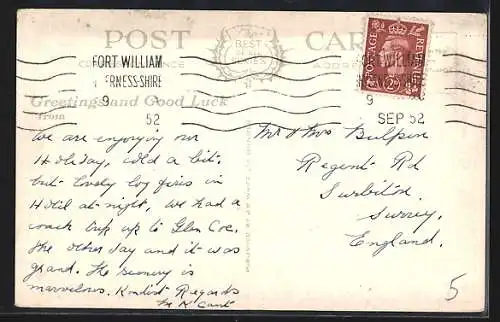 POST CARD
THE BEST OF ALL SERIES
FORT WILLIAM
ERNESS-SHIRE
9
52
POSTAGE REVENUE
2D
9
SEP 52
Greetings and Good Luck
from
We are enjoying our
Holiday, cold a bit.
but lovely log fires in
Hotel at night, we had a
coach trip up to Glen Coe,
the other day and it was
grand. The scenery is
marvelous. Kindest Regards
Mr & Mrs Bulpin
Regent Rd
Surbiton
Surrey.
England.
5